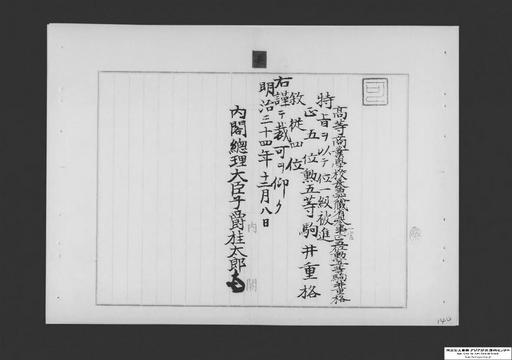 可
高等商業學校長
正五位勳五等駒井重格
特旨ヲ以テ位一級被進
正五位勳五等駒井重格
敘從四位
右謹テ裁可ヲ仰ク
明治三十四年十二月八日
內閣總理大臣子爵桂太郎
內閣